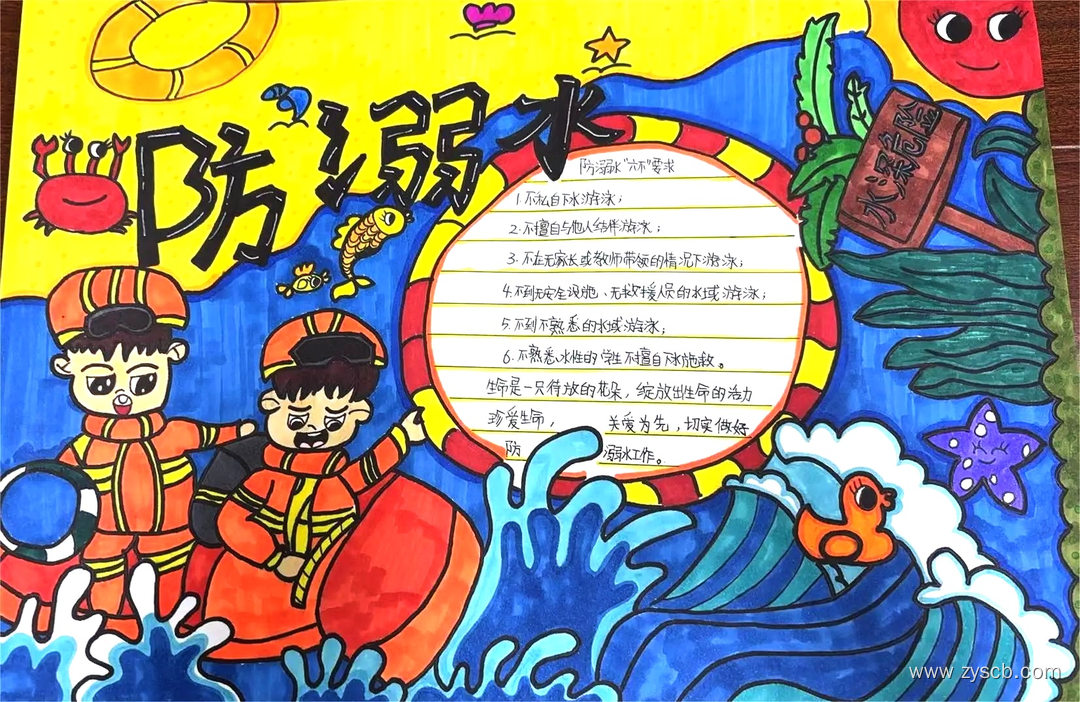 防溺水
水深危险
防溺水"六不"要求
1.不私自下水游泳；
2.不擅自与他人结伴游泳；
3.不在无家长或教师带领的情况下游泳；
4.不到无安全设施、无救援人员的水域游泳；
5.不到不熟悉的水域游泳；
6.不熟悉水性的学生不擅自下水施救。
生命是一只待放的花朵，绽放出生命的活力
珍爱生命，关爱为先，切实做好
防溺水工作。
www.zyscb.com